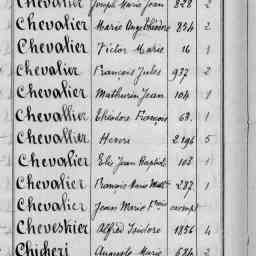 Chevalier Joseph Marie Jean 828 2
Chevalier Marie Ange Théodore 854 2
Chevalier Victor Marie 16 1
Chevalier François Jules 937 2
Chevalier Mathurin Jean 104 1
Chevallier Théodore François 68 1
Chevallier Henri 2196 5
Chevalier Elie Jean Baptiste 103 1
Chevalier François Marie Math 237 1
Chevalier James Marie Frois exempt
Cheveskier Alfred Isidore 1856 4
Chicheri Auguste Marie 684 2